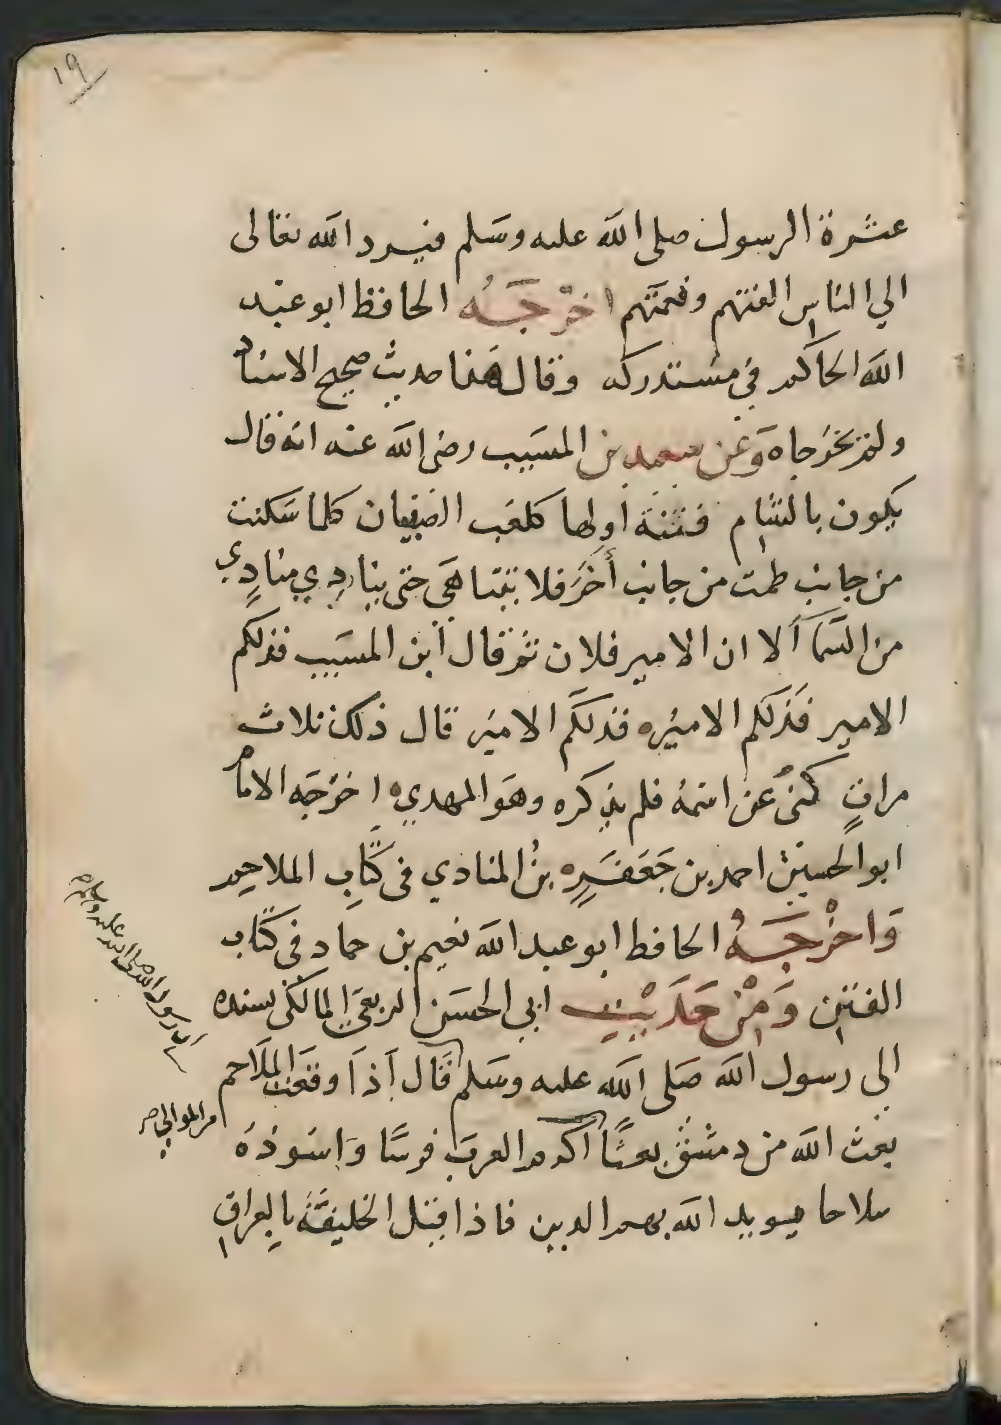 ١٩
عشرة الرسول صلى الله عليه وسلم فيرد الله تعالى
الي الناس الفتهم ونعمتهم اخرجه الحافظ ابو عبد
الله الحاكم في مستدركه وقال هذا حديث صحيح الاسناد
ولم يخرجاه وعن سعيد بن المسيب رضى الله عنه انه قال
يكون بالشام فتنة اولها كلعب الصبيان كلما سكنت
من جانب طمت من جانب أخر فلا تتناهي حتى ينادي منادي
من السما ألا ان الامير فلان ثم قال ابن المسيب فذلكم
الامير فذلكم الاميره فذلكم الامير قال ذلك ثلاث
مرات كنى عن اسمه فلم يذكره وهو المهدي اخرجه الامام
ابو الحسين احمد بن جعفر بن المنادي فى كتاب الملاحم
واخرجه الحافظ ابو عبد الله نعيم بن حماد فى كتاب
الفتن ومن حديث ابي الحسن الربعي المالكى بسنده
الى رسول الله صلى الله عليه وسلم قال اذا وقعت الملاحم
بعث الله من دمشق بعثا اكرم العرب فرسا واسوده
سلاحا يويد الله بهم الدين فاذا قتل الخليفة بالعراق
ان رسول الله صلى الله عليه وسلم
من الموالي صح